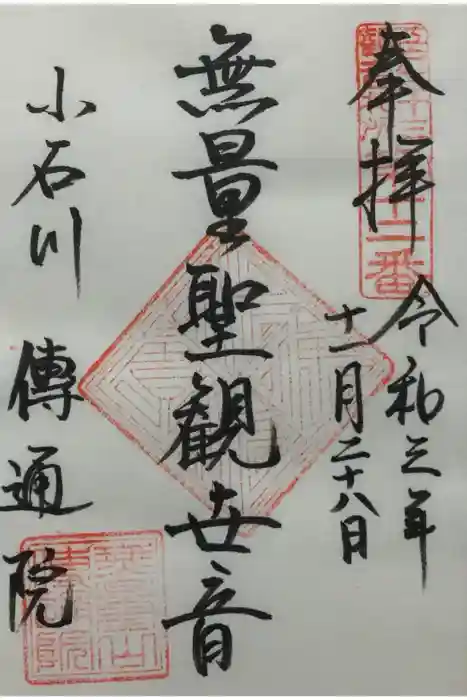 奉拝
令和三年
十一月二十八日
無量聖観世音
小石川
傳通院
十二番